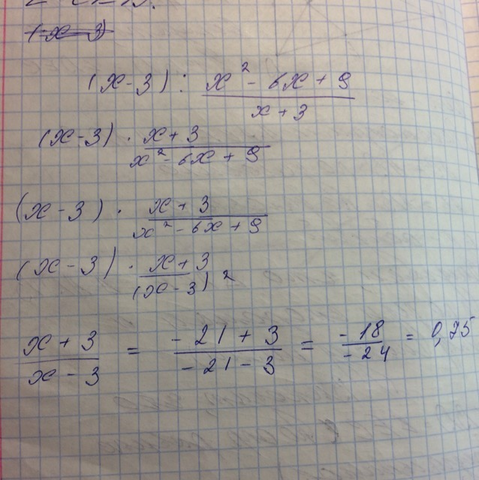 (-x-3)
(x-3) : (x² - 6x + 9)/(x+3)
(x-3) · (x+3)/(x² - 6x + 9)
(x-3) · (x+3)/(x² - 6x + 9)
(x-3) · (x+3)/(x-3)²
(x+3)/(x-3) = (-21+3)/(-21-3) = -18/-24 = 0,75